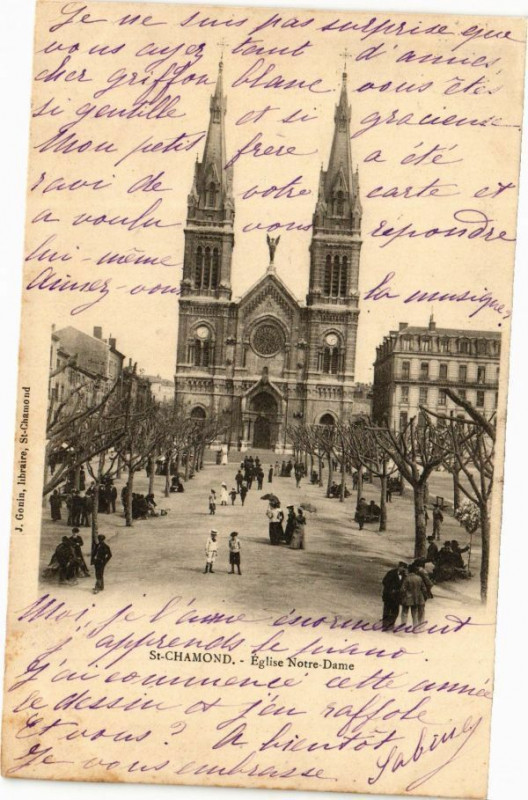 Je ne suis pas surprise que
vous ayez tant d'amies,
cher griffon blanc. vous êtes
si gentille et si gracieuse
Mon petit frère a été
ravi de votre carte et
a voulu vous répondre
lui-même
Aimez-vous la musique?
J. Gonin, libraire, St-Chamond
Moi, je l'aime énormement
j'apprends le piano.
St-CHAMOND. - Église Notre-Dame
j'ai commencé cette année
le dessin et j'en raffole
Et vous? A bientôt
Je vous embrasse Sabine